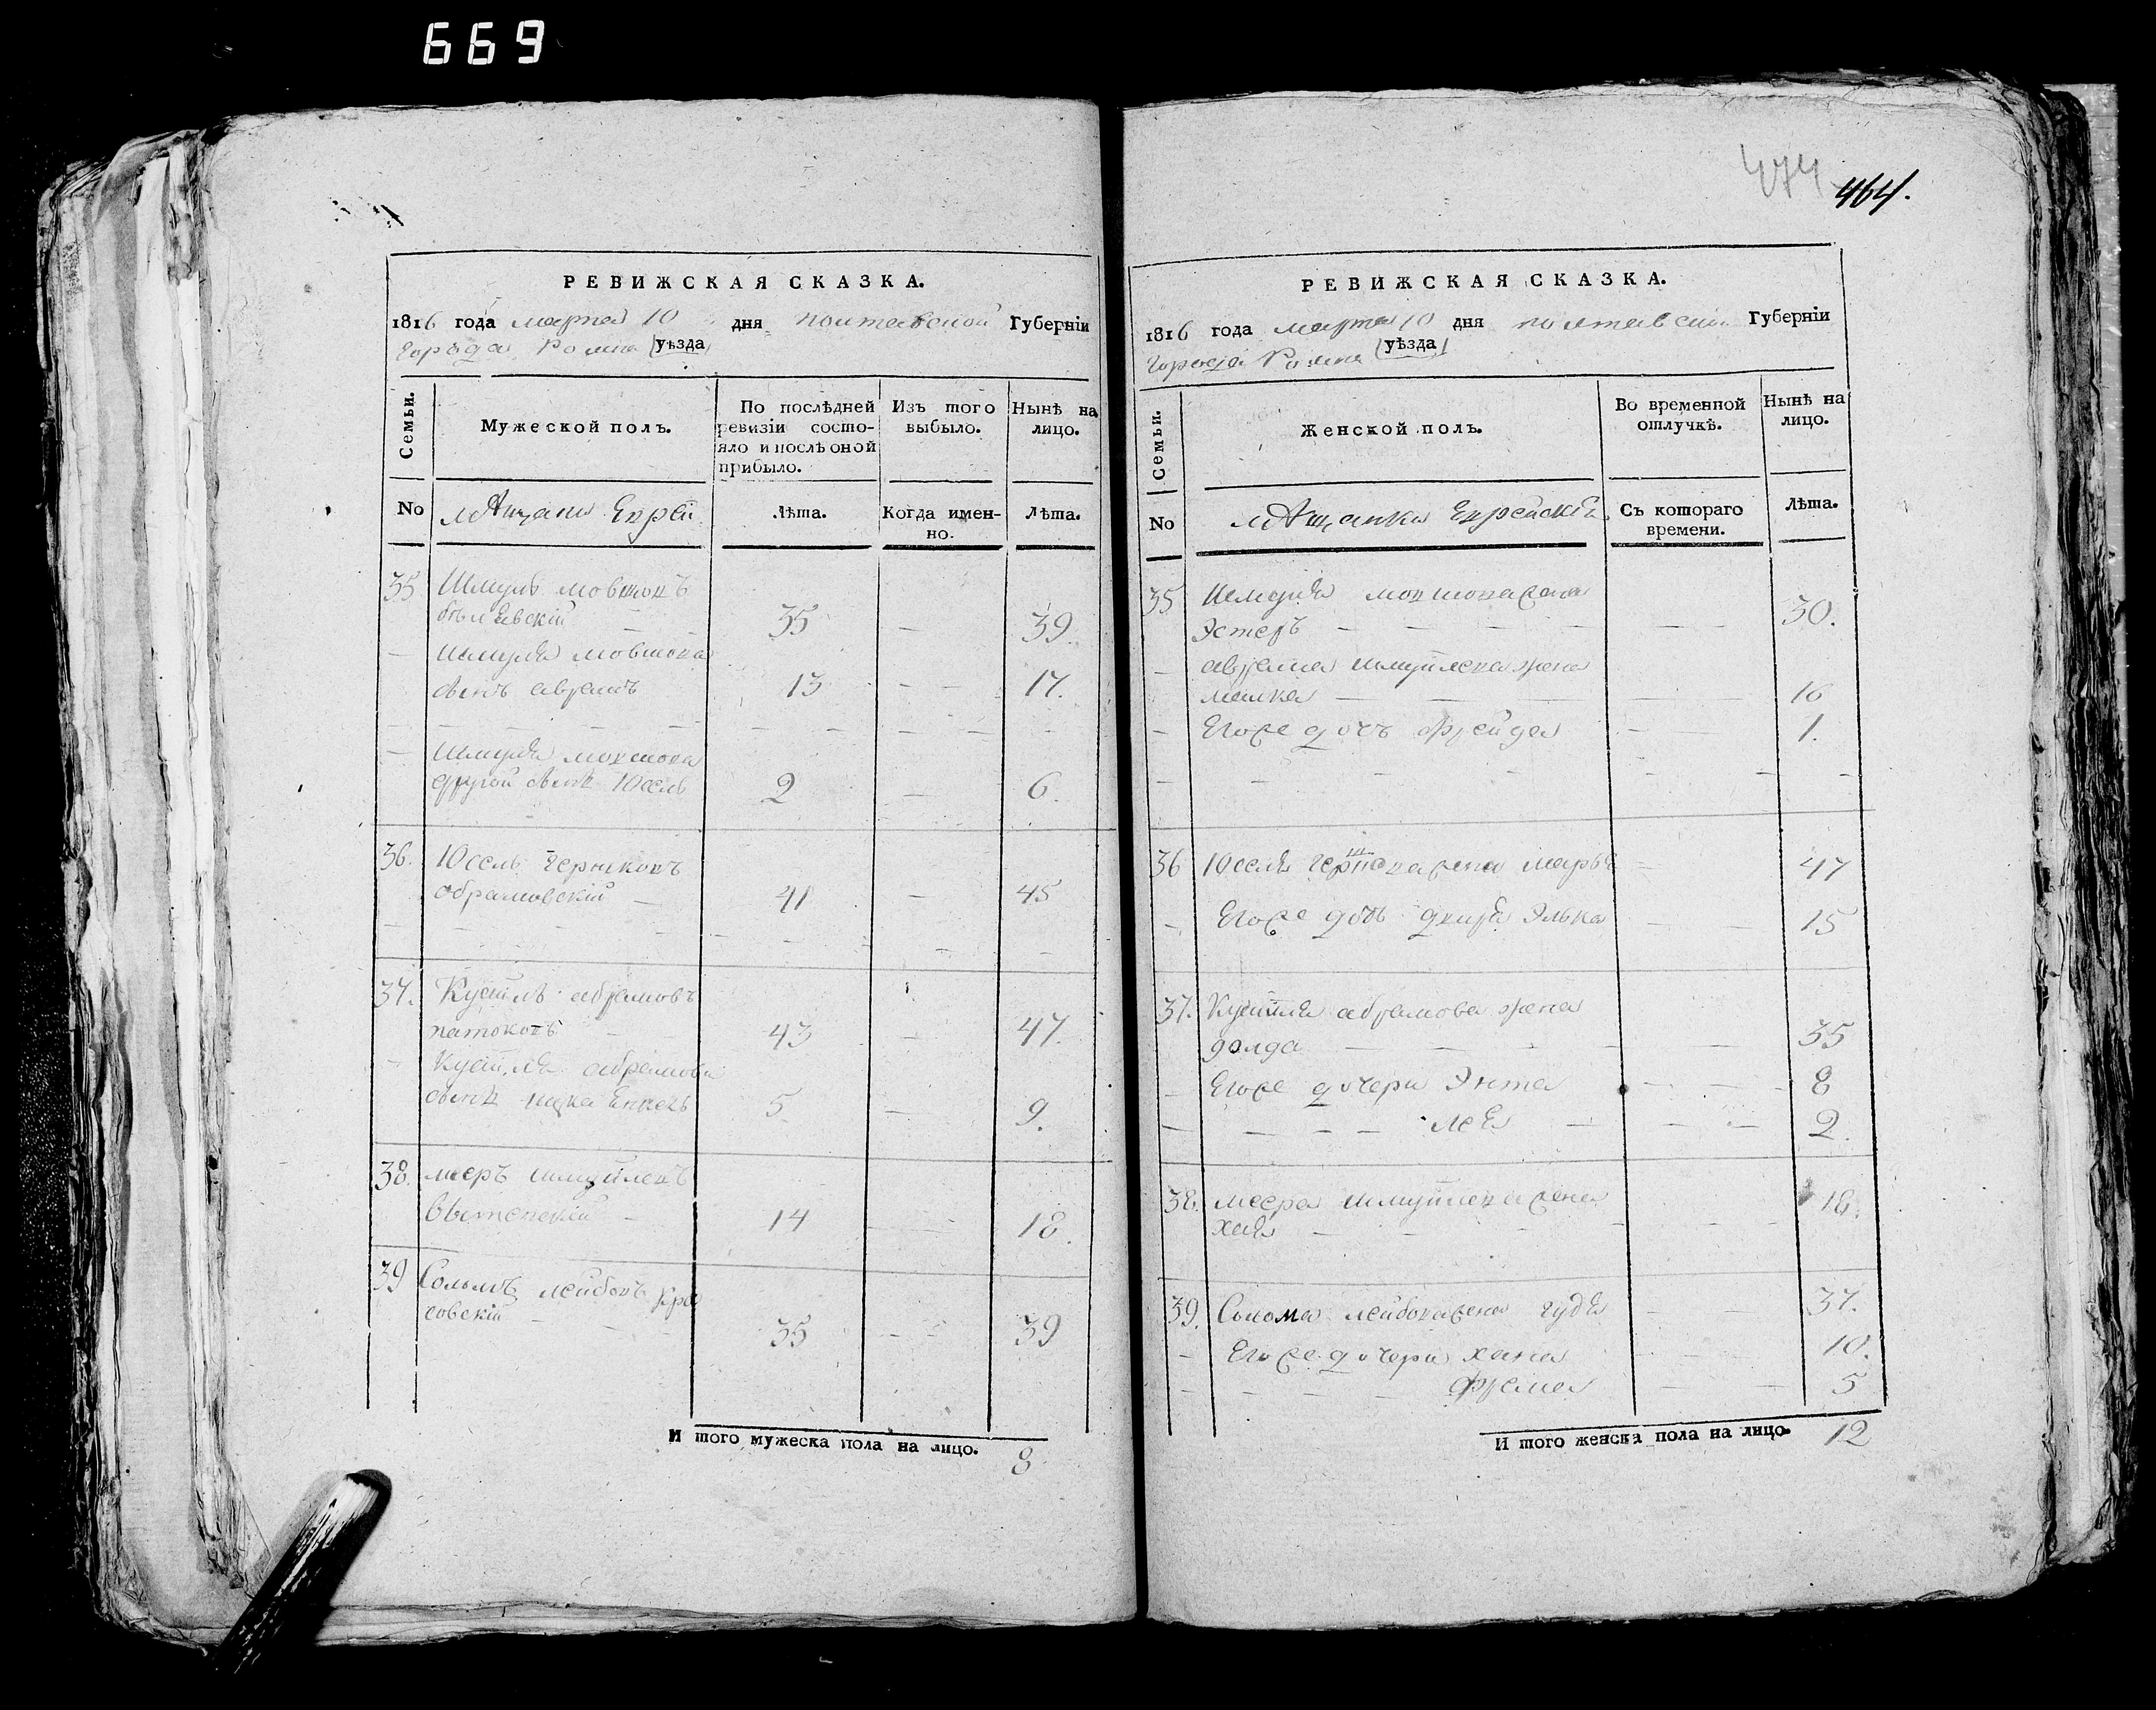 669
474
464.
РЕВИЖСКАЯ СКАЗКА.
1816 года марта 10 дня полтавской Губерніи
города Ромна уѣзда
Семьи.
Мужеской полъ.
По послѣдней ревизіи состо-
яло и послѣ оной
прибыло.
Изъ того
выбыло.
Нынѣ на
лицо.
No
мѣщани Еврѣи
Лѣта.
Когда имен-
но.
Лѣта.
35 Шмуль мовшовъ
бѣлѣвскій 35 — 39.
— Шмуля мовшова
сынъ абрамъ 13 — — 17.
— Шмуля мовшова
другой сынъ Юсель 2 — 6.
36. Юсель
абрамовскій — 41 — 45
37. абрамовъ
43 — 47.
— абрамова
сынъ 5 9.
38. мееръ шмуйловъ
14 — 18.
39 лейбовъ
35 — — 39
И того мужеска пола на лицо. 8
РЕВИЖСКАЯ СКАЗКА.
1816 года марта 10 дня полтавской Губерніи
города Ромна уѣзда
Семьи.
Женской полъ.
Во временной
отлучкѣ.
Нынѣ на
лицо.
No
мѣщанки Еврейскія
Съ котораго
времени.
Лѣта.
35 Шмуля мовшова жена
Эстеръ — — — — — 30.
— абрама шмуйлова жена
малка — — — — 16
— Егоже дочь фрейда — — 1.
36 Юселя жена — 47
— Егоже дочь Элька — — 15
37. абрамова жена
— — — 35
— Егоже дочери Энта — — 8
— — — — лея — — — 2.
38. меера шмуйлова жена
хая — — — — 18.
39. лейбова жена — — 37.
— Егоже дочери хана — — 10.
— — — — фрема — — 5
И того женска пола на лицо. 12